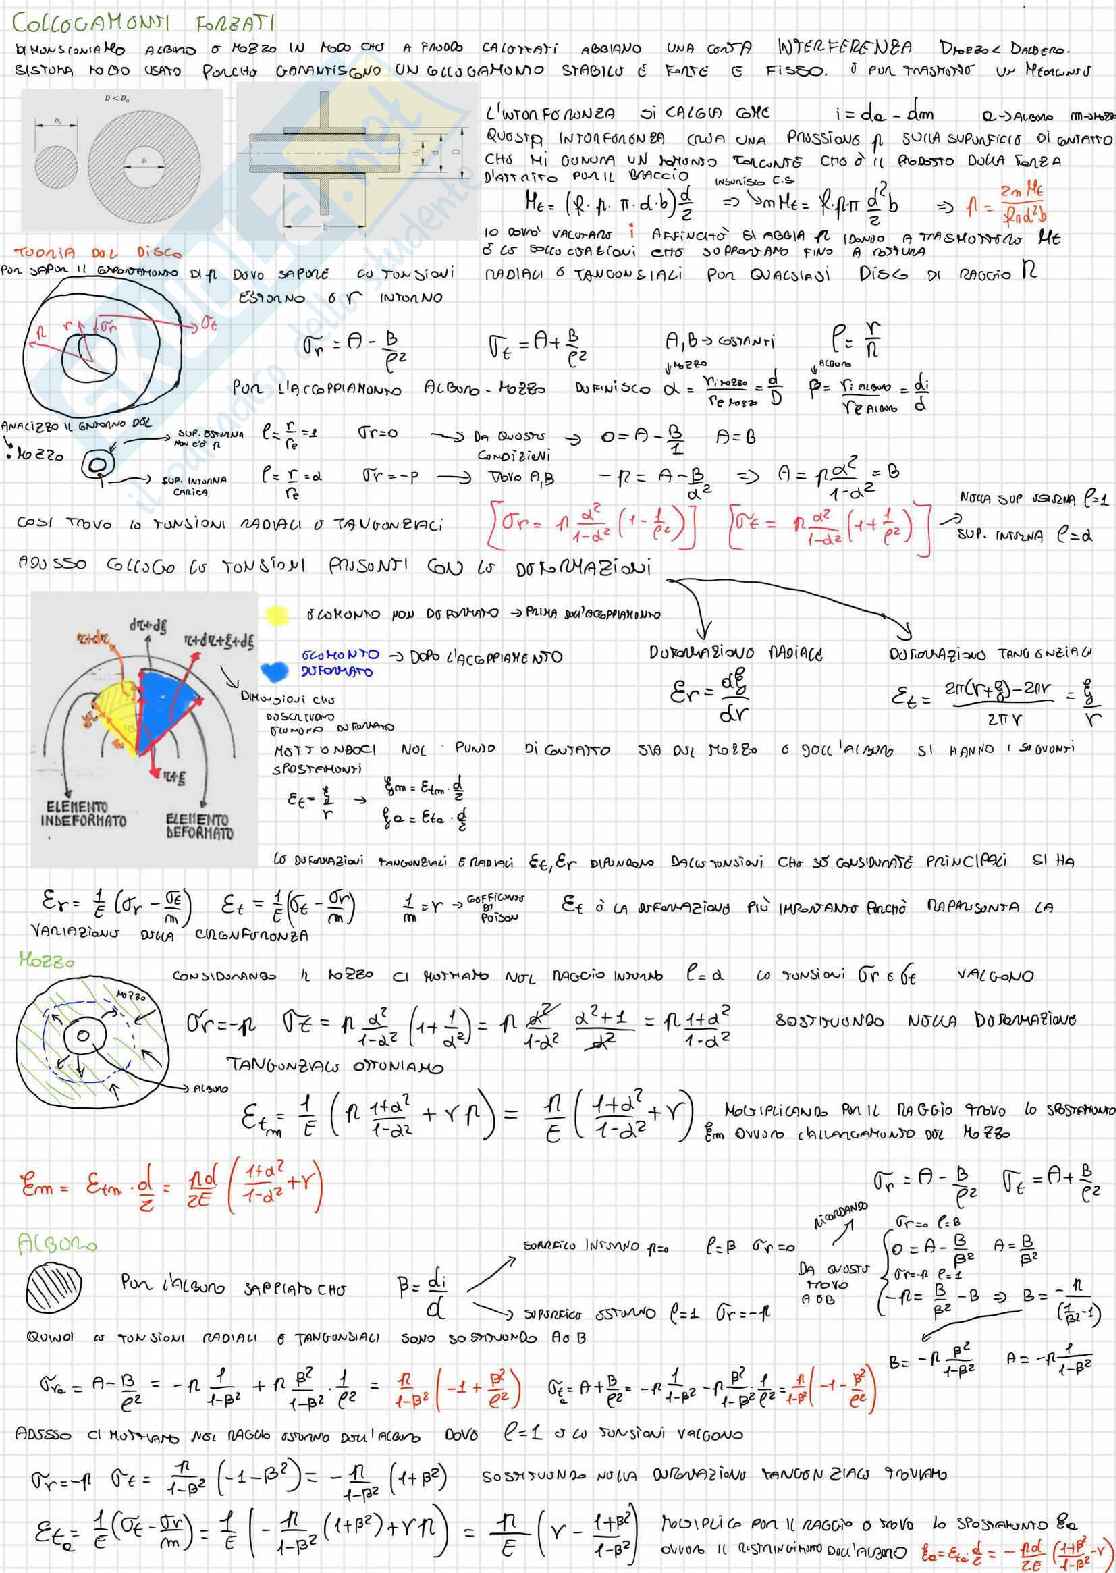 COLLEGAMENTI FORZATI
DIMENSIONIAMO ALBERO E MOZZO IN MODO CHE A FREDDO CALETTATI ABBIANO UNA CERTA INTERFERENZA Dmozzo < DALBERO.
SISTEMA MOLTO USATO PERCHÈ GARANTISCONO UN COLLEGAMENTO STABILE E FORTE E FISSO. E PUR TRASMETTE UN MEMENTO
D<Dₐ
L'INTERFERENZA SI CALCOLA COME i = da - dm a→ALBERO m→MOZZO
QUESTA INTERFERENZA CREA UNA PRESSIONE p SULLA SUPERFICIE DI CONTATTO
CHE MI GENERA UN MOMENTO TORCENTE CHE È IL PRODOTTO DELLA FORZA
D'ATTRITO PER IL BRACCIO INSERISCO C.S
Mt = (f·p·π·d·b) d/2 ⇒ mMt = f·pπ d²/2 b ⇒ p = 2mMt/fπd²b
IO DEVO VALUTARE i AFFINCHÈ SI ABBIA p IDONEA A TRASMETTERE Mt
E LE SOLLECITAZIONI CHE SOPPORTANO FINO A ROTTURA
TEORIA DEL DISCO
PER SAPER IL ANDAMENTO DI p DEVO SAPERE LE TENSIONI RADIALI E TANGENZIALI PER QUALSIASI DISCO DI RAGGIO R
ESTERNO E r INTERNO
R r σr σt
σr = A - B/ρ² σt = A + B/ρ² A,B → COSTANTI ρ = r/R
PER L'ACCOPPIAMENTO ALBERO-MOZZO DEFINISCO ↓MOZZO α = ri mozzo/re mozzo = d/D ↓ALBERO β = ri albero/re albero = di/d
ANALIZZO IL INTORNO DEL
• MOZZO → SUP. ESTERNA NON C'È p ρ = r/re = 1 σr = 0 → DA QUESTE CONDIZIONI ⇒ 0 = A - B/1 A = B
SUP. INTERNA CARICA ρ = r/re = α σr = -p → TROVO A,B -p = A - B/α² ⇒ A = p α²/1-α² = B
COSÌ TROVO LE TENSIONI RADIALI E TANGENZIALI [σr = p α²/1-α² (1 - 1/ρ²)] [σt = p α²/1-α² (1 + 1/ρ²)] → NELLA SUP ESTERNA ρ=1
SUP. INTERNA ρ=α
ADESSO COLLEGO LE TENSIONI PRESENTI CON LE DEFORMAZIONI
ELEMENTO NON DEFORMATO → PRIMA DELL'ACCOPPIAMENTO
ELEMENTO DEFORMATO → DOPO L'ACCOPPIAMENTO
r+dr
dr+dξ
r+dr+ξ+dξ
r+ξ
ELEMENTO INDEFORMATO
ELEMENTO DEFORMATO
DIMENSIONI CHE
DESCRIVONO
ELEMENTO DEFORMATO
DEFORMAZIONE RADIALE
εr = dξ/dr
DEFORMAZIONE TANGENZIALE
εt = 2π(r+ξ)-2πr/2πr = ξ/r
METTENDOCI NEL PUNTO DI CONTATTO SIA DEL MOZZO E DELL'ALBERO SI HANNO I SEGUENTI
SPOSTAMENTI
εt = ξ/r → ξm = εtm · d/2
ξa = εta · d/2
LE DEFORMAZIONI TANGENZIALI E RADIALI εt, εr DIPENDONO DALLE TENSIONI CHE SE CONSIDERATE PRINCIPALI SI HA
εr = 1/E (σr - σt/m) εt = 1/E (σt - σr/m) 1/m = ν → COEFFICIENTE DI POISON εt È LA DEFORMAZIONE PIÙ IMPORTANTE PERCHÈ RAPPRESENTA LA
VARIAZIONE DELLA CIRCONFERENZA
MOZZO
CONSIDERANDO IL MOZZO CI METTIAMO NEL RAGGIO INTERNO ρ = α LE TENSIONI σr E σt VALGONO
MOZZO
ALBERO
σr = -p σt = p α²/1-α² (1 + 1/α²) = p α²/1-α² α²+1/α² = p 1+α²/1-α² SOSTITUENDO NELLA DEFORMAZIONE
TANGENZIALE OTTENIAMO
εtm = 1/E (p 1+α²/1-α² + νp) = p/E (1+α²/1-α² + ν) MOLTIPLICANDO PER IL RAGGIO TROVO LO SPOSTAMENTO
ξm OVVERO L'ALLARGAMENTO DEL MOZZO
ξm = εtm · d/2 = pd/2E (1+α²/1-α² + ν)
σr = A - B/ρ² σt = A + B/ρ²
RICORDANDO
ALBERO
PER L'ALBERO SAPPIAMO CHE β = di/d
SUPERFICE INTERNA p=0 ρ=β σr=0
SUPERFICE ESTERNA ρ=1 σr=-p
DA QUESTE TROVO A E B
σr=0 ρ=β
0 = A - B/β² A = B/β²
σr=-p ρ=1
-p = B/β² - B ⇒ B = -p/(1/β² - 1)
B = -p β²/1-β² A = -p 1/1-β²
QUINDI LE TENSIONI RADIALI E TANGENZIALI SONO SOSTITUENDO A E B
σra = A - B/ρ² = -p 1/1-β² + p β²/1-β² · 1/ρ² = p/1-β² (-1 + β²/ρ²) σta = A + B/ρ² = -p 1/1-β² - p β²/1-β² · 1/ρ² = p/1-β² (-1 - β²/ρ²)
ADESSO CI METTIAMO NEL RAGGIO ESTERNO DELL'ALBERO DOVE ρ = 1 E LE TENSIONI VALGONO
σr = -p σt = p/1-β² (-1-β²) = -p/1-β² (1+β²) SOSTITUENDO NELLA DEFORMAZIONE TANGENZIALE TROVIAMO
εta = 1/E (σt - σr/m) = 1/E (-p/1-β² (1+β²) + νp) = p/E (ν - 1+β²/1-β²) MOLTIPLICO PER IL RAGGIO E TROVO LO SPOSTAMENTO ξa
OVVERO IL RESTRINGIMENTO DELL'ALBERO ξa = εta · d/2 = -pd/2E (1+β²/1-β² - ν)